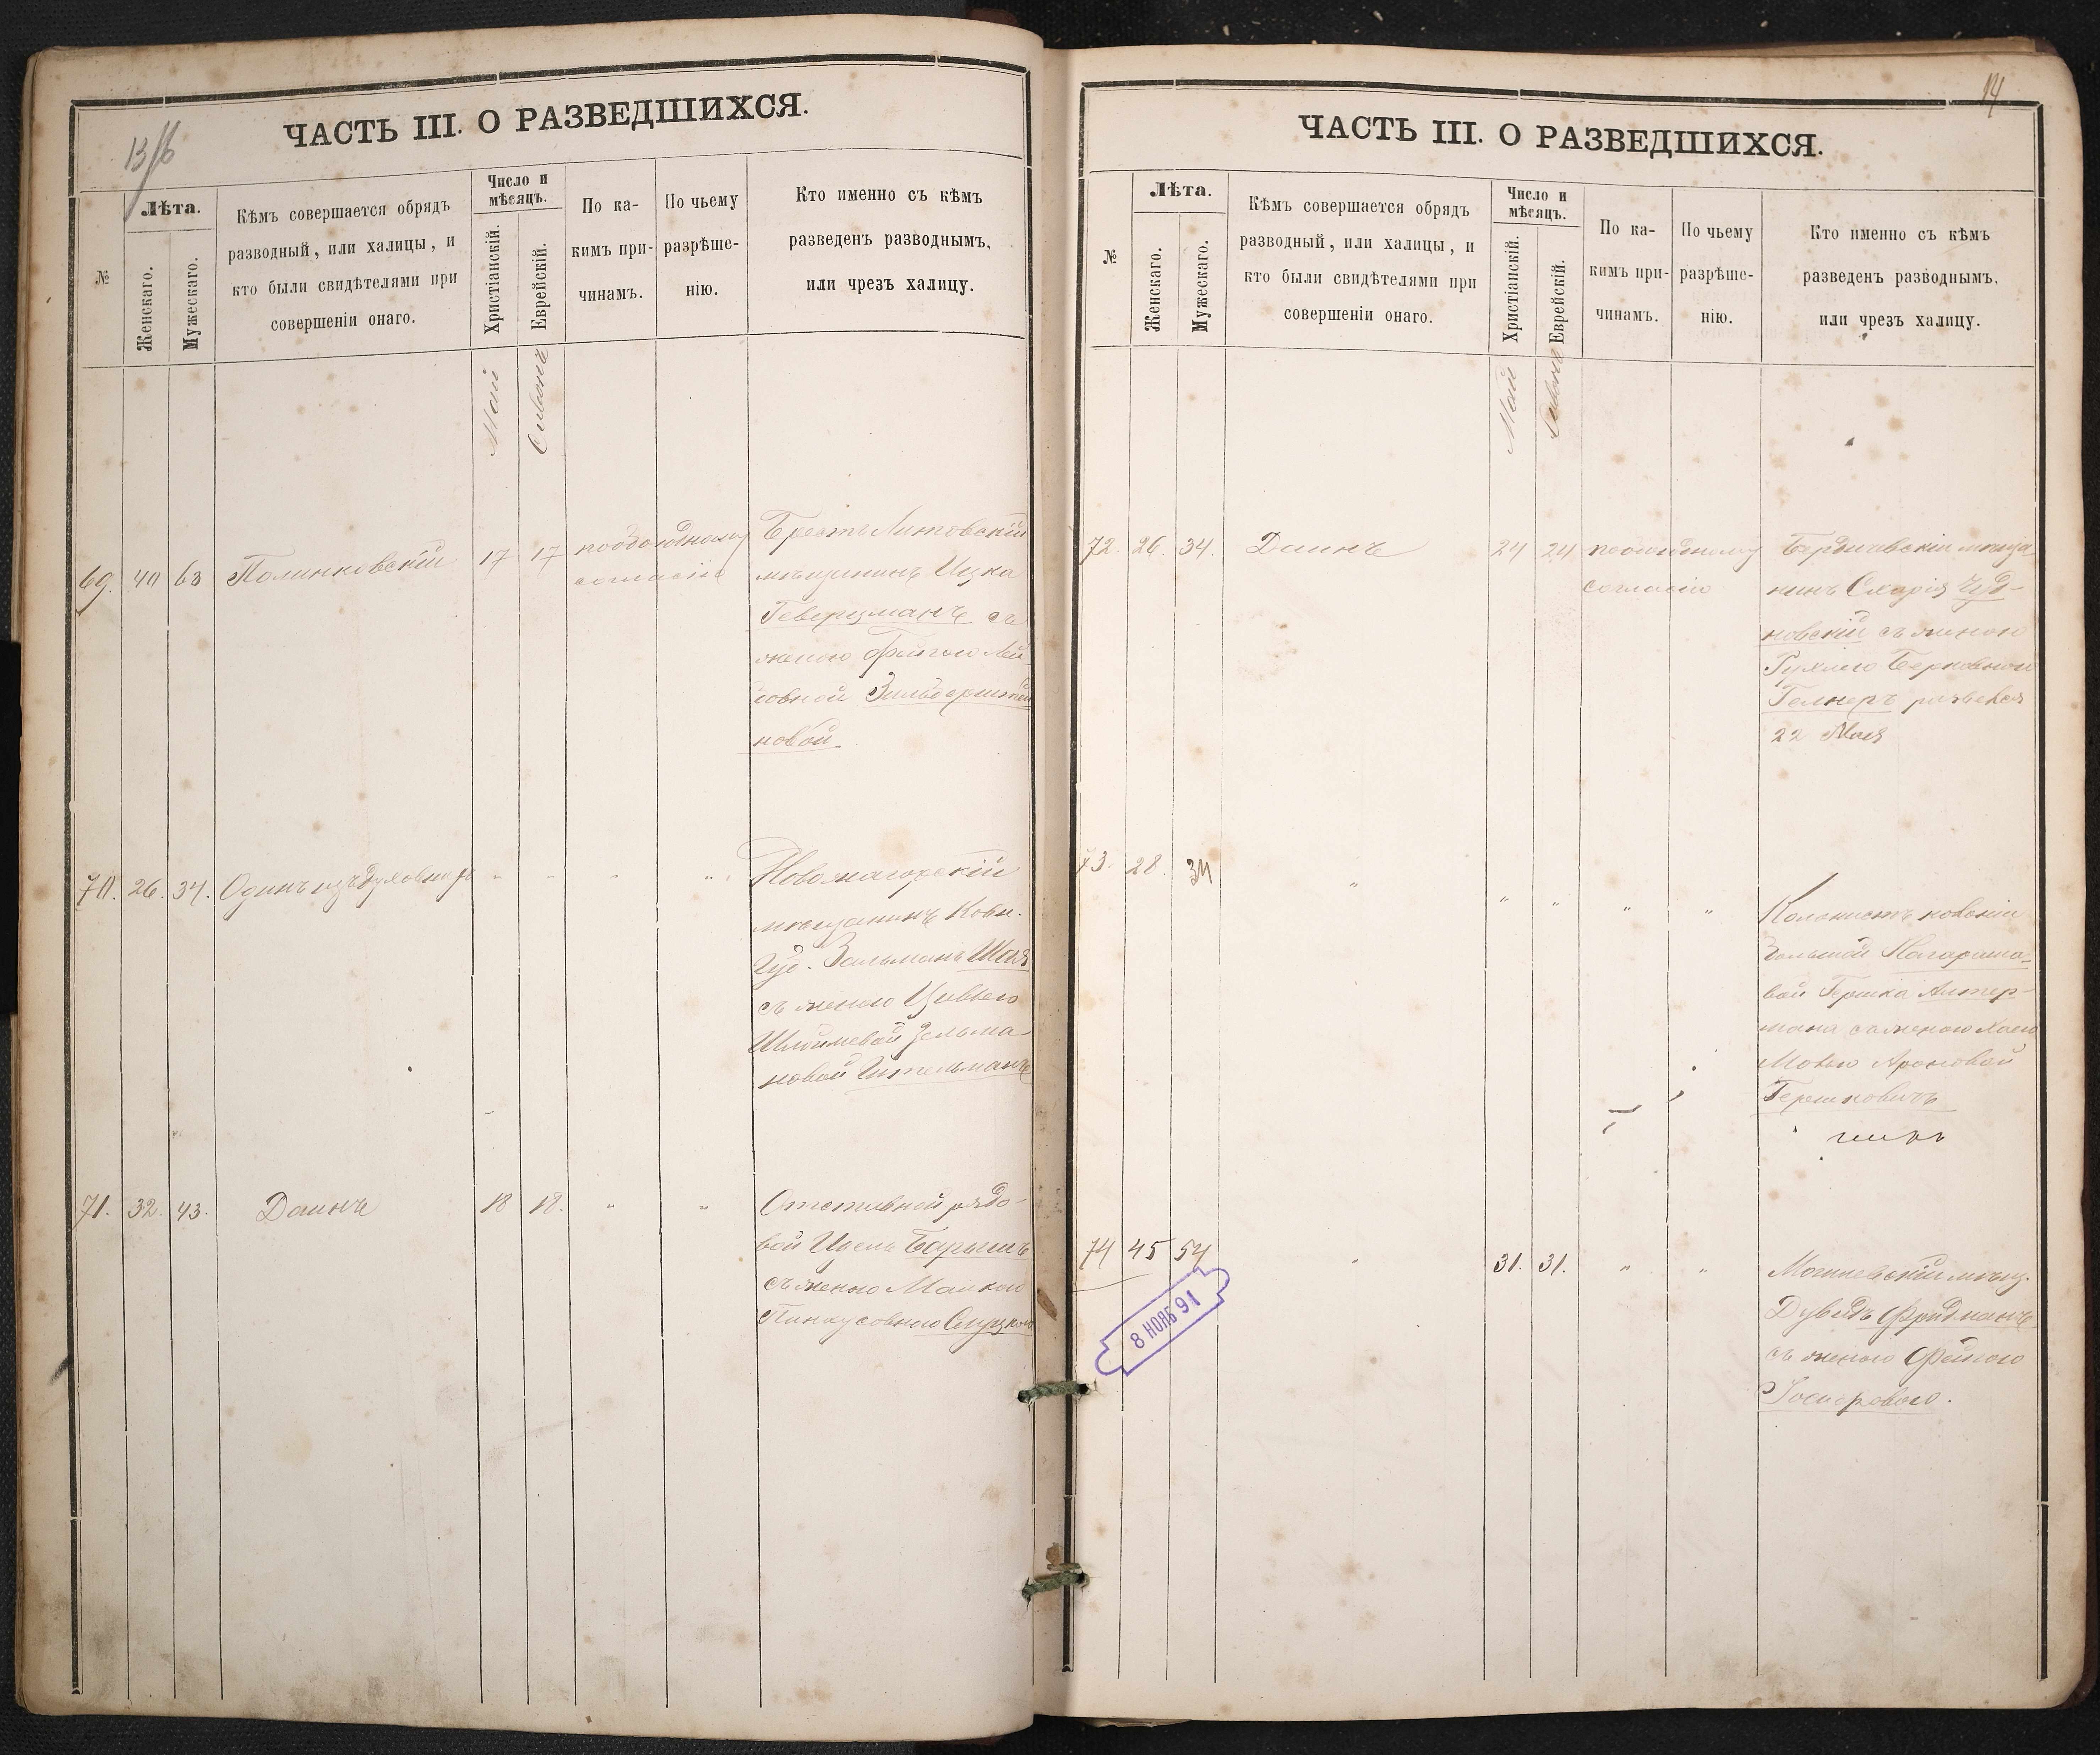 13/б
ЧАСТЬ III. О РАЗВЕДШИХСЯ.
№
Лѣта.
Женскаго.
Мужескаго.
Кѣмъ совершается обрядъ
разводный, или халицы, и
кто были свидѣтелями при
совершеніи онаго.
Число и
мѣсяцъ.
Христіанскій.
Еврейскій.
По ка-
кимъ при-
чинамъ.
По чьему
разрѣше-
нію.
Кто именно съ кѣмъ
разведенъ разводнымъ,
или чрезъ халицу.
Май
Сиванъ
69. 40 63 Полинковскій 17 17 пообоюдному
согласію
Брестъ Литовскій
мѣщанинъ Ицка
Геверцманъ съ
женою Фейгою Лей
бовной
новой.
70. 26. 34. Одинъ изъ духовныхъ " " " "
мѣщанинъ Ковн.
Губ. Зальманъ Шая
съ женою Цивьею
Шлиомовой Зельма-
новой Гительманъ
71. 32. 43. Даинъ 18 18. " "
Отставной рядо-
вой Іосель Барышъ
съ женою Малкой
Пинкусовною Слуцкою
14
ЧАСТЬ III. О РАЗВЕДШИХСЯ.
№
Лѣта.
Женскаго.
Мужескаго.
Кѣмъ совершается обрядъ
разводный, или халицы, и
кто были свидѣтелями при
совершеніи онаго.
Число и
мѣсяцъ.
Христіанскій.
Еврейскій.
По ка-
кимъ при-
чинамъ.
По чьему
разрѣше-
нію.
Кто именно съ кѣмъ
разведенъ разводнымъ,
или чрезъ халицу.
Май
Сиванъ
72. 26. 34. Даинъ 24 24 пообоюдному
согласію
Бердичевскій мѣща
нинъ Схарія Чуд-
новскій съ женой
Рухлею Берковной
Гелнеръ развелся
22 Мая
73. 28. 34 " " " " "
Колонистъ колоніи
бай Гершка Алтер-
мана съ женою Хаею
Мотью Ароновой
Гершковичъ
74 45 54 " 31. 31. " "
Могилевскій мѣщ.
Дувидъ Фридманъ
съ женою Фейгою
8 НОЯБ 91